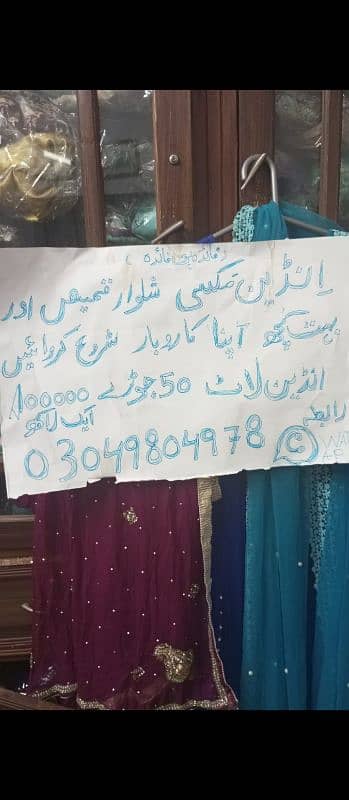 (فائدہ ہی فائدہ)
انڈین میکسی شلوار قمیص اور
بہت کچھ اپنا کاروبار شروع کروائیں
انڈین لاٹ 50 جوڑے 100000
ایک لاکھ
رابطہ
03049804978